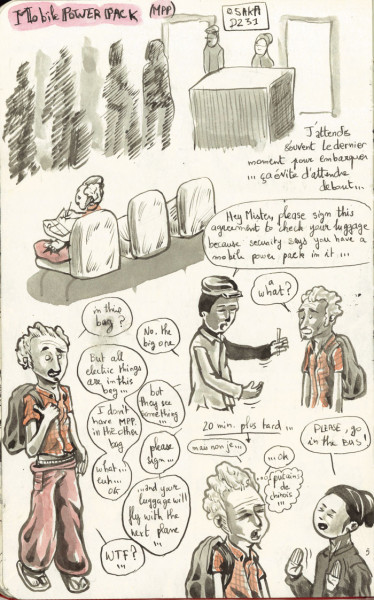 Mobile POWER PACK (MPP)
OSAKA
D231
J'attends
souvent le dernier
moment pour embarquer
... ça évite d'attendre
debout...
Hey Mister, please sign this
agreement to check your luggage
because security says you have a
mobile power pack in it ...
a
what?
in this
bag ?
No. the
big one
But all
electric things
are in this
bag ...
but
they see
something
...
I don't
have MPP
in the other
bag
please
sign ...
what...
euh...
ok
...and your
luggage will
fly with the
next plane
...
WTF?
...
20 min. plus tard ...
mais non je ...
... ok
de
chinois ...
PLEASE, go
in the BUS!